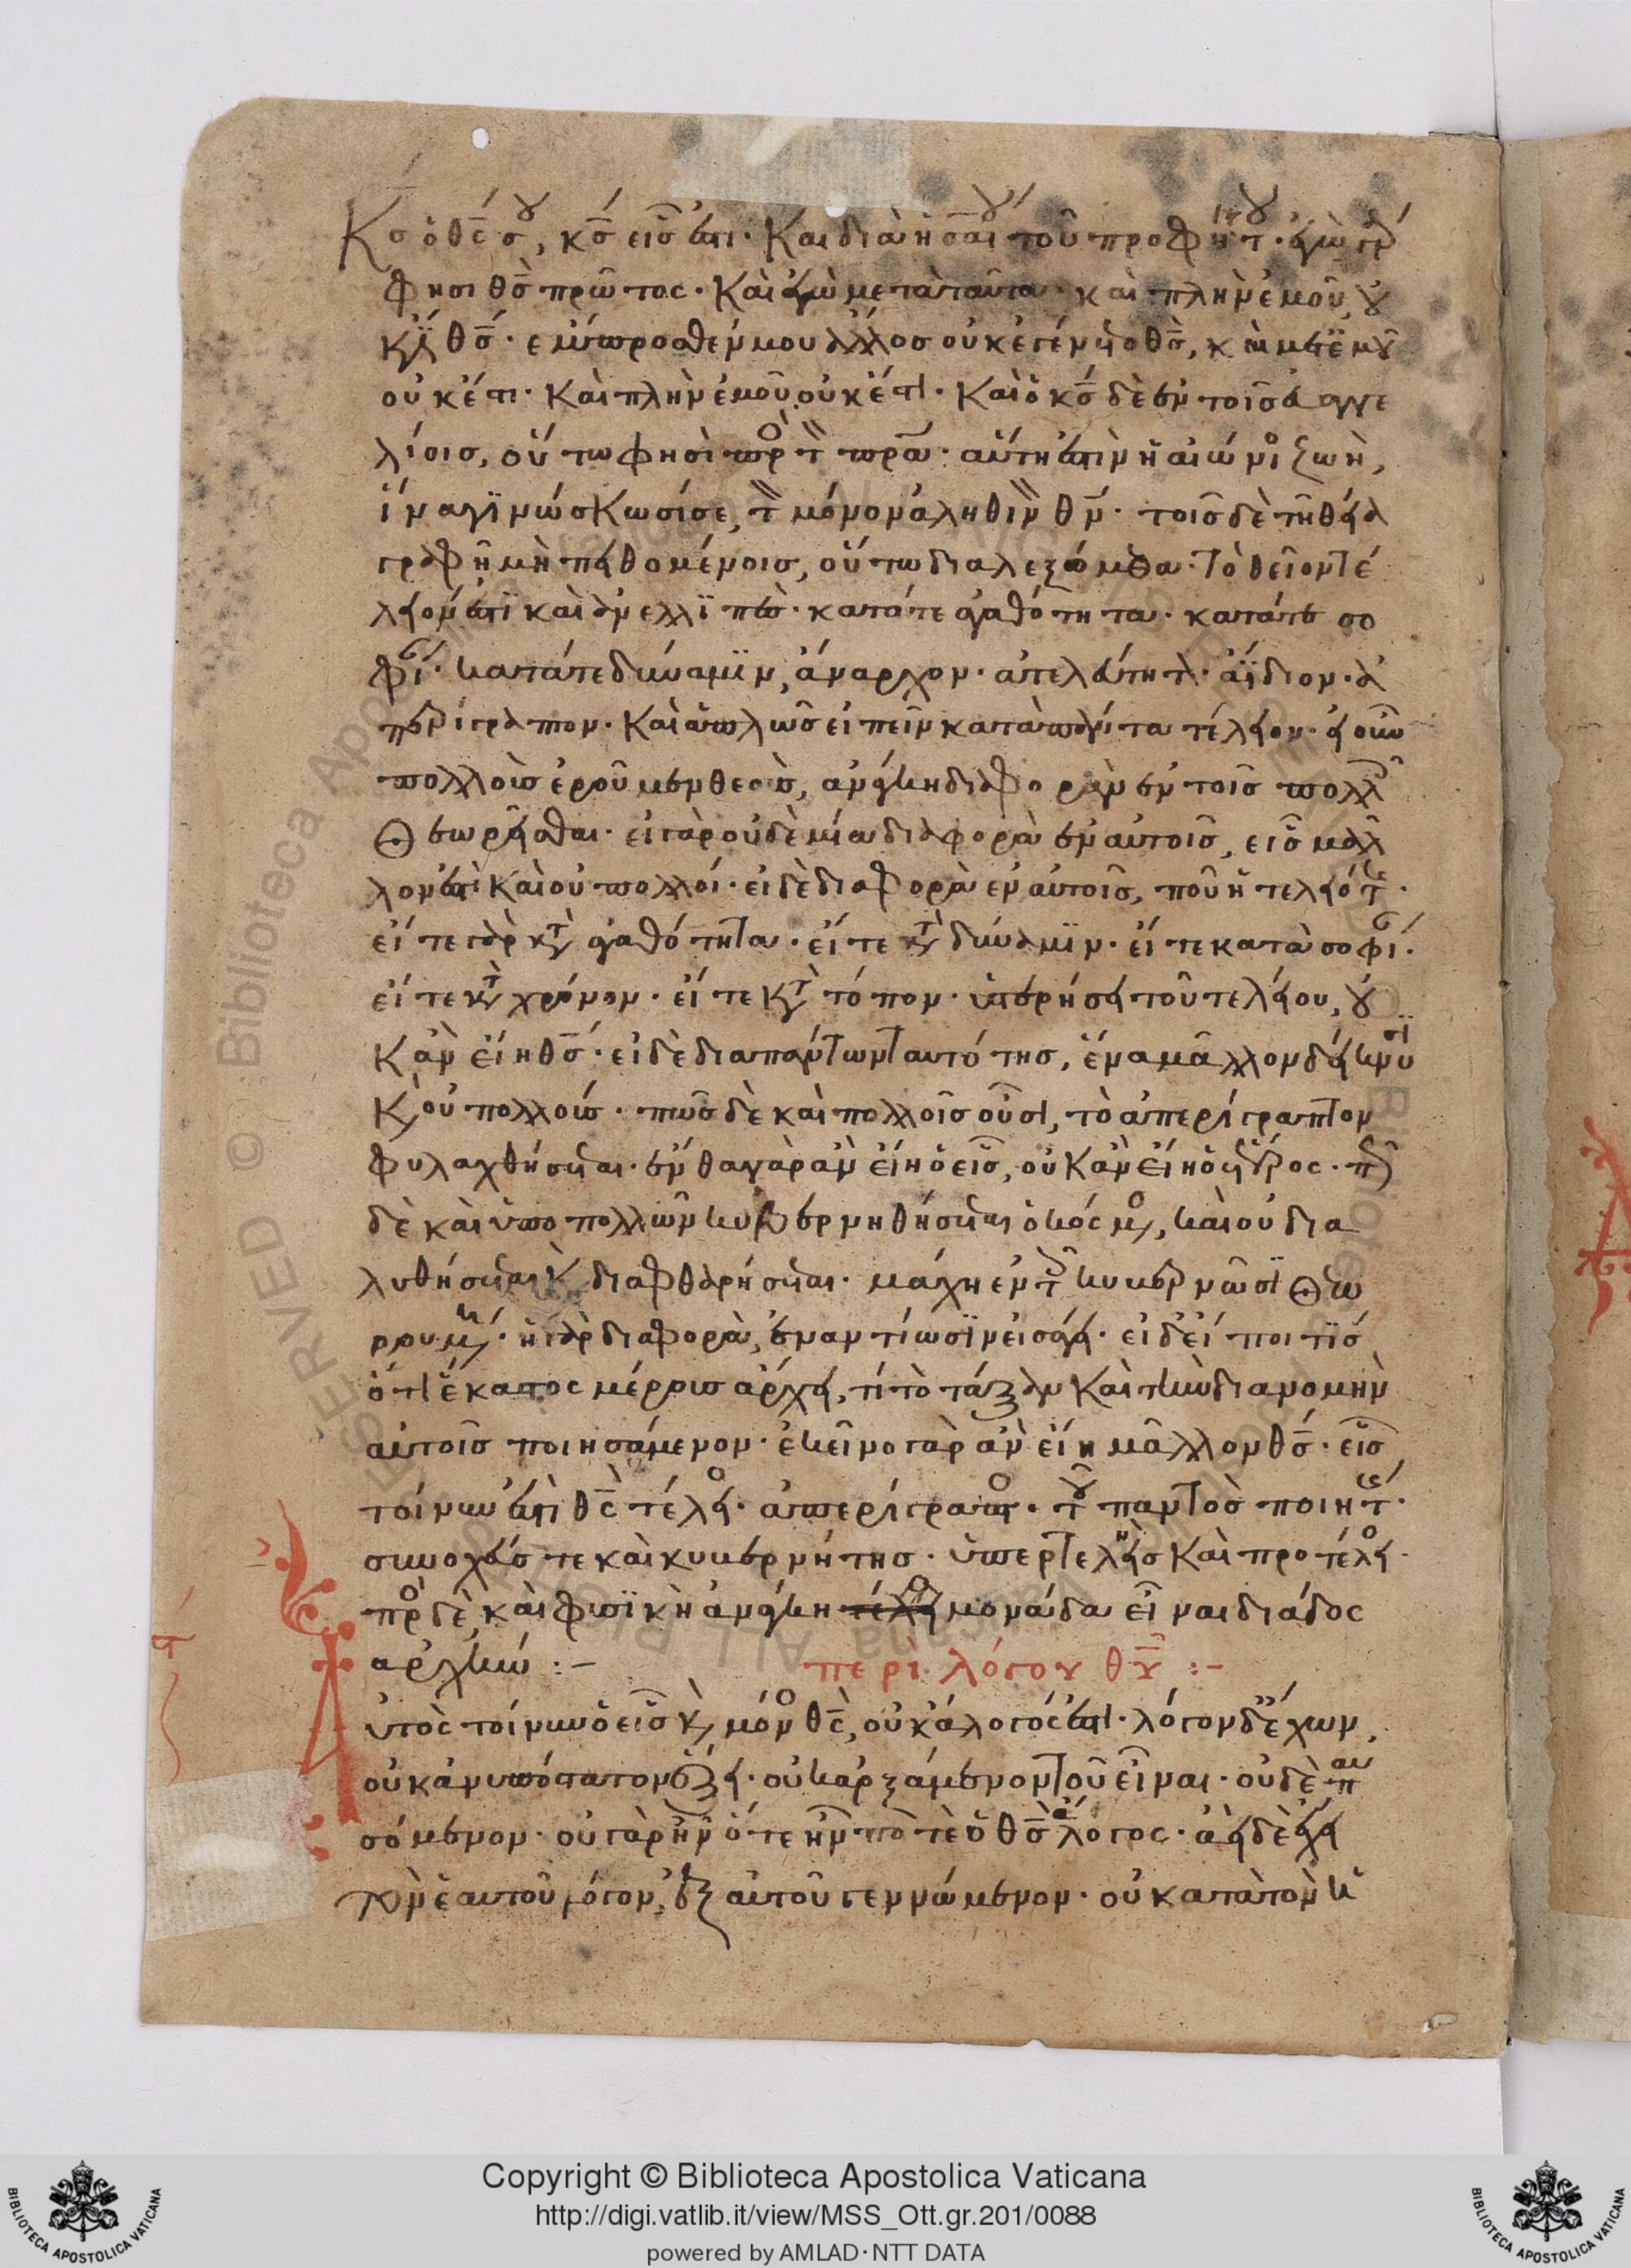 Κς ὁ θς σου, κς εἷς ἐστι· Καὶ διὰ ἠσαΐου τοῦ προφήτου· ἐγὼ γάρ
φησι θς πρῶτος· Καὶ ἐγὼ μετὰ ταῦτα· καὶ πλὴν ἐμοῦ, οὐ
κ ἔστι θς· ἔμπροσθέν μου ἄλλος οὐκ ἐγένετο θς, καὶ μετ ἐμοῦ
οὐκ ἔστι· Καὶ πλὴν ἐμοῦ οὐκ ἔστι· Καὶ ὁ κς δὲ ἐν τοῖς εὐαγγε
λίοις, οὕτω φησὶ πρὸς τὸν πρα· αὕτη ἐστὶν ἡ αἰώνιος ζωὴ,
ἵνα γινώσκωσί σε, τὸν μόνον ἀληθινὸν θν· τοῖς δὲ τῆ θεία
γραφῆ μὴ πειθομένοις, οὕτω διαλεξόμεθα· Τὸ θεῖον τέ
λειόν ἐστι καὶ ἀνελλιπὲς· κατά τε ἀγαθότητα· κατά τε σο
φίαν· κατά τε δύναμιν, ἄναρχον· ἀτελεύτητον· ἀΐδιον· ἀ
περίγραπτον· Καὶ ἁπλῶς εἰπεῖν κατὰ πάντα τέλειον· εἰ οὖν
πολλοὺς ἐροῦμεν θεοὺς, ἀνάγκη διαφορὰν ἐν τοῖς πολλοῖς
θεωρεῖσθαι· εἰ γὰρ οὐδὲ μία διαφορὰ ἐν αὐτοῖς, εἷς μᾶλ
λόν ἐστὶ καὶ οὐ πολλοί· εἰ δὲ διαφορὰ ἐν αὐτοῖς, ποῦ ἡ τελειότης·
εἴτε γὰρ κατὰ ἀγαθότητα· εἴτε κατὰ δύναμιν· εἴτε κατὰ σοφίαν·
εἴτε κατὰ χρόνον· εἴτε κατὰ τόπον· ὑστερήσει τοῦ τελείου, οὐ
κ ἂν εἴη θς· εἰ δὲ διὰ πάντων ταυτότης, ἕνα μᾶλλον δείκνυσι
καὶ οὐ πολλούς· πῶς δὲ καὶ πολλοῖς οὖσι, τὸ ἀπερίγραπτον
φυλαχθήσεται· ἔνθα γὰρ ἂν εἴη ὁ εἷς, οὐκ ἂν εἴη ὁ ἕτερος· πῶς
δὲ καὶ ὑπο πολλῶν κυβερνηθήσεται ὁ κόσμος, καὶ οὐ δια
λυθήσεται καὶ διαφθαρήσεται· μάχη ἐν τοῖς κυβερνῶσι θεω
ρουμένης· ἡ γὰρ διαφορὰ, ἐναντίωσιν εἰσάγει· εἰ δ εἴποι τίς
ὅτι ἕκαστος μέρους ἄρχει, τί τὸ τάξαν καὶ τὴν διανομὴν
αὐτοῖς ποιησάμενον· ἐκεῖνο γὰρ ἂν εἴη μᾶλλον θς· εἷς
τοίνυν ἐστὶ θς τέλειος· ἀπερίγραπτος· τοῦ παντὸς ποιητής·
συνοχεύς τε καὶ κυβερνήτης· ὑπερτελὴς καὶ προτέλειος·
πρὸς δὲ, καὶ φυσικὴ ἀνάγκη μονάδα εἶναι διάδος
ἀρχὴν :–
περὶ λόγου θυ :–
Αὐτὸς τοίνυν ὁ εἷς καὶ μόνος θς, οὐκ ἄλογός ἐστι· λόγον δ ἔχων,
οὐκ ἀνυπόστατον ἕξει· οὐκ ἀρξάμενον τοῦ εἶναι· οὐδὲ παυ
σόμενον· οὐ γὰρ ἦν ὅτε ἦν ποτὲ ὁ θς ἄλογος· ἀεὶ δὲ ἔχει
τὸν ἑαυτοῦ λόγον, ἐξ αὐτοῦ γεννώμενον· οὐ κατὰ τὸν ἡ